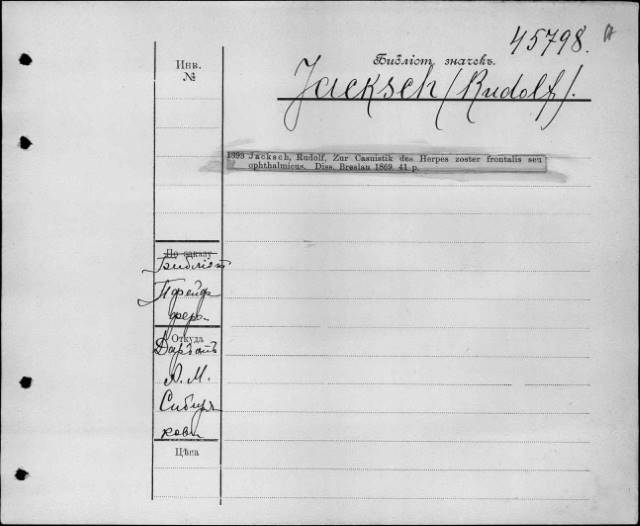 45798.
Инв.
№
Библіот. значекъ.
Jacksch (Rudolf).
1893 Jacksch, Rudolf, Zur Casuistik des Herpes zoster frontalis seu
ophthalmicus. Diss. Breslau 1869. 41 p.
По заказу
Библіот
Пфейф
фера
Откуда
Даръ отъ
А. М.
Сибиря
кова
Цѣна